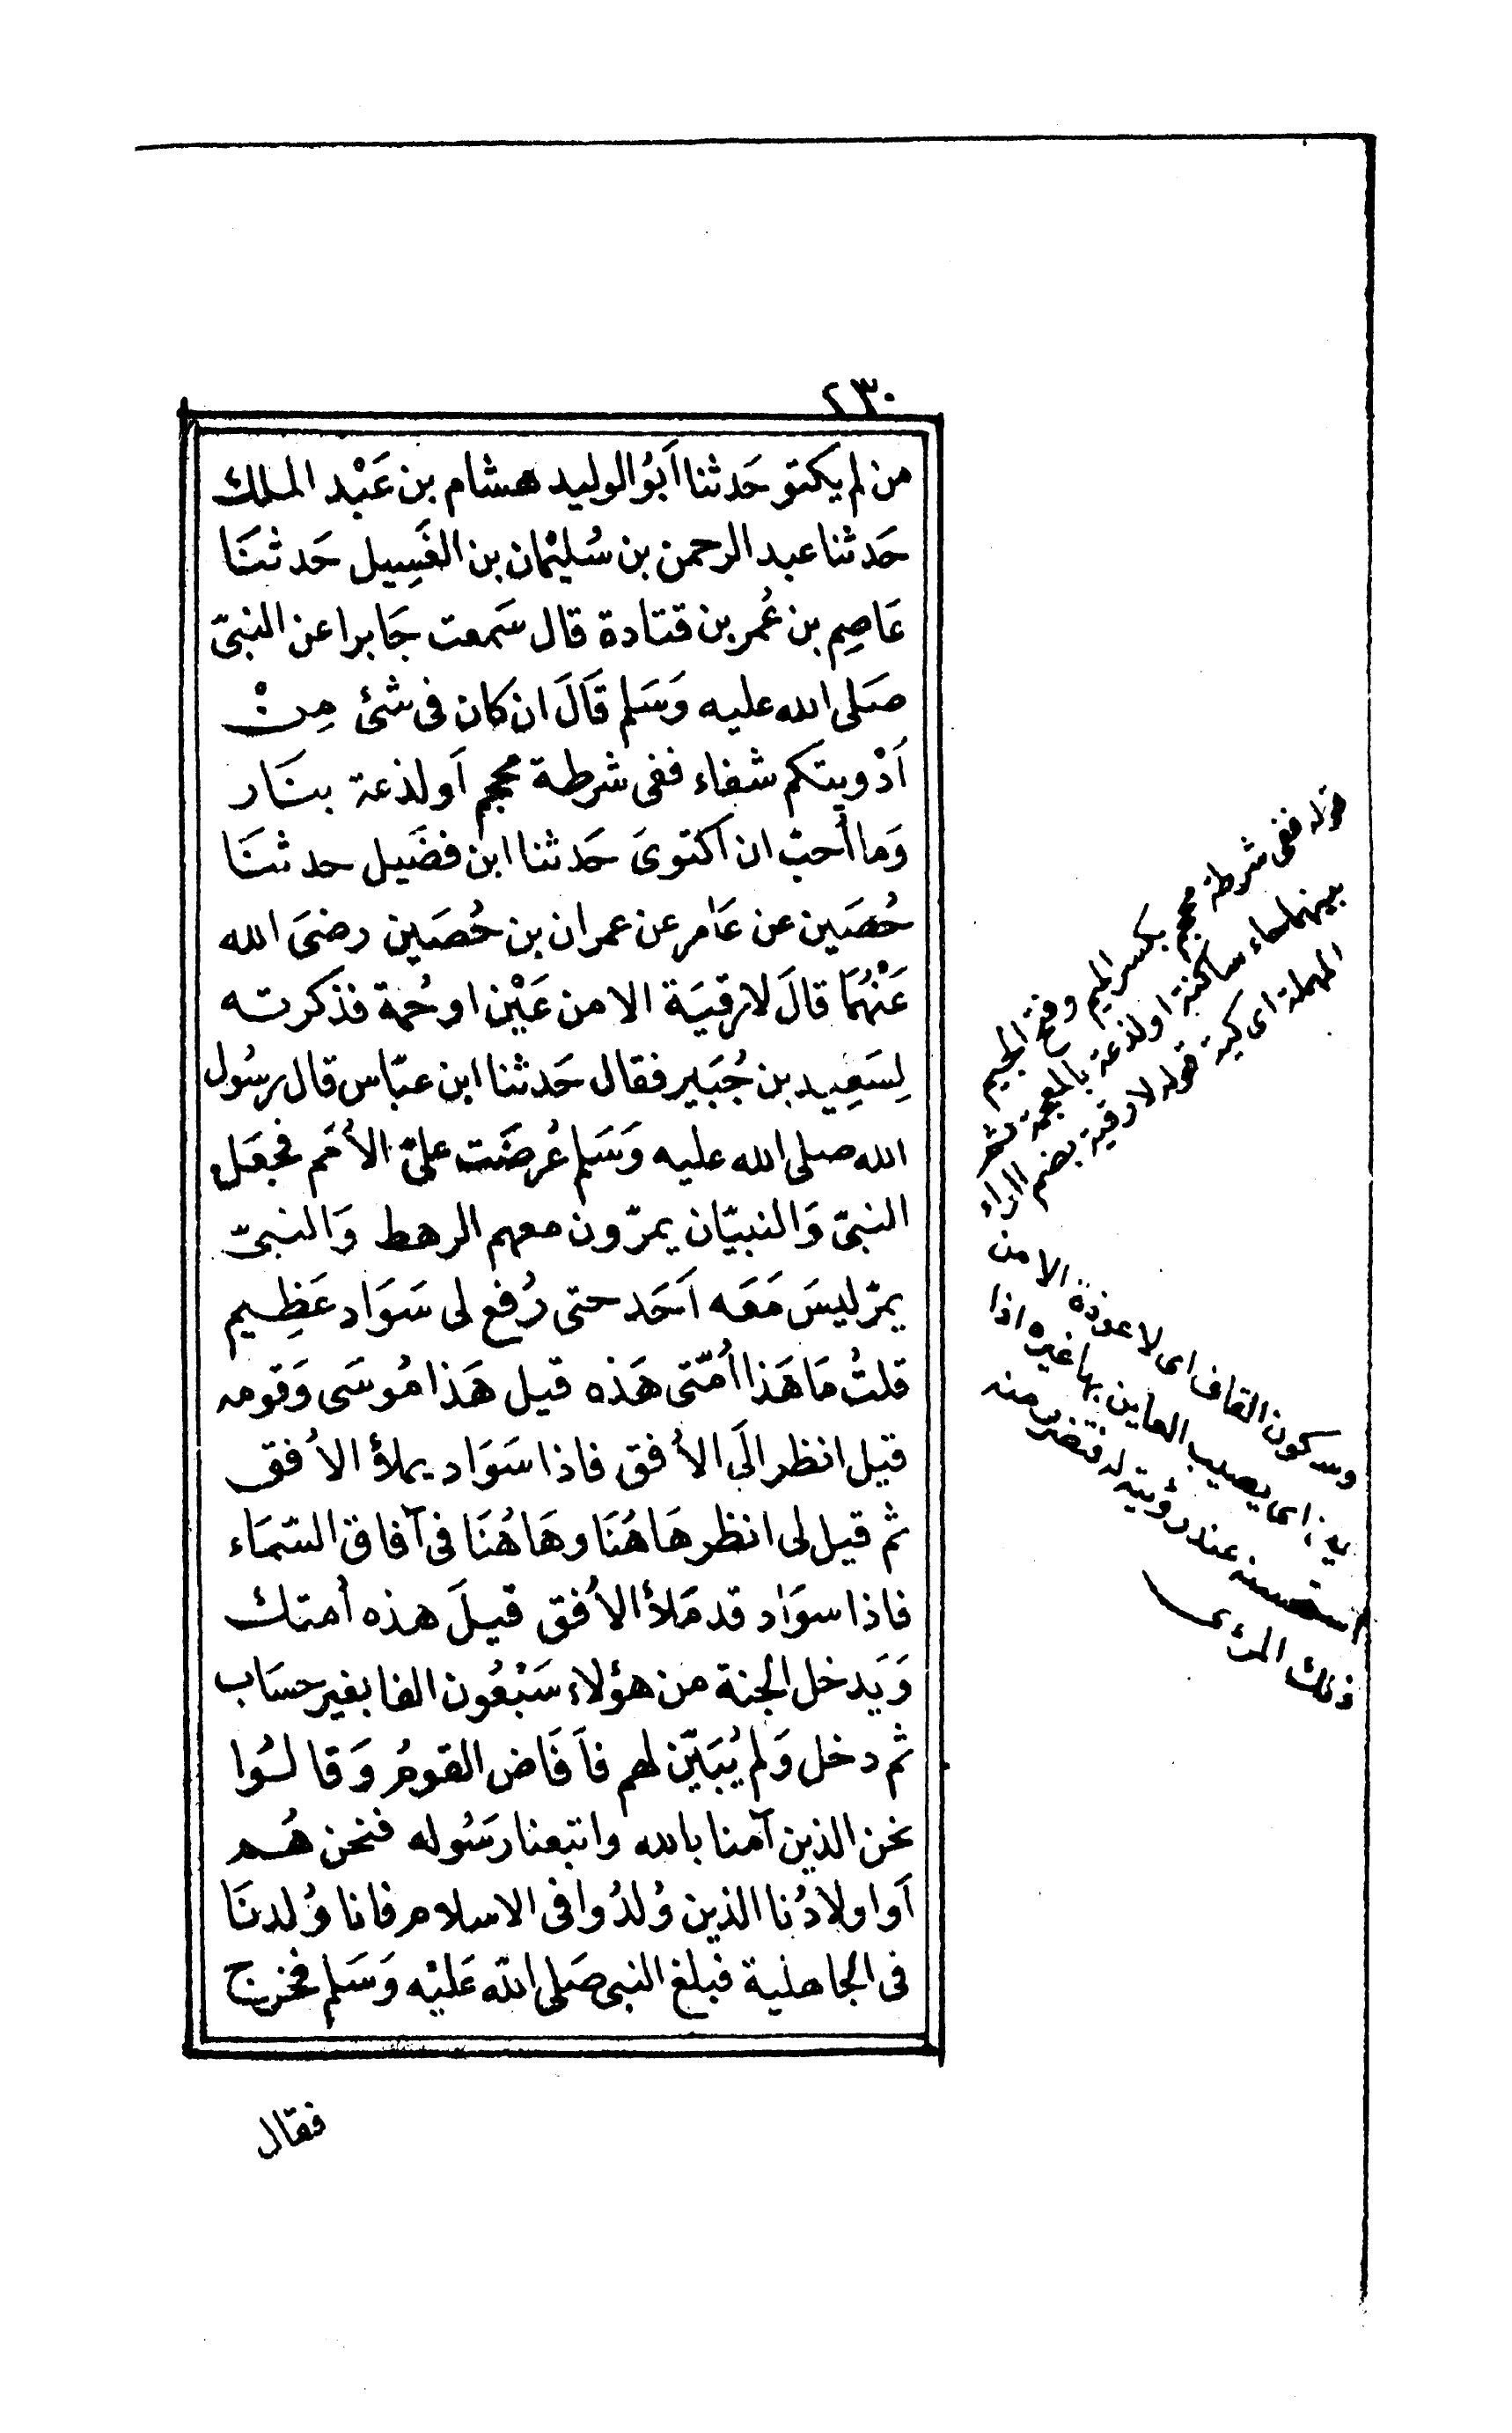 ٢٣٠
من لم يكتو حَدثنا أبُو الوليد هشام بن عَبْد الملك
حَدثنا عبد الرحمن بن سُليْمان بن الغَسِيل حَدثنَا
عَاصِم بن عُمر بن قتادة قال سَمعت جَابرا عن النبىّ
صَلى الله عليه وَسَلم قَالَ ان كان فى شئ مِنْ
اَدْويتكم شفاء ففى شرطة محجم اَو لذعة بنَار
وَما أحبّ ان اكتوىَ حَدثنا ابن فضَيل حدثنَا
حُصَين عن عَامر عن عمران بن حُصَين رضىَ الله
عَنْهُمَا قالَ لا رقيَة الا من عَيْن او حُمة فذكرته
لِسَعِيد بن جُبَير فقال حَدثنا ابن عبّاس قال رسُول
الله صلى الله عليه وَسَلم عُرضَت علىّ الأمَم فجعَل
النبىّ وَالنبيّان يمرّون معهم الرهط وَالنبىّ
يمرّ ليسَ مَعَه اَحَد حتى رُفع لى سَوَاد عَظِيم
قلتُ مَا هَذا أمّتى هَذه قيل هَذا مُوسَى وَقومه
قيل انظر الَى الأفق فاذا سَوَاد يملأ الأفق
ثم قيل لى انظر هَاهُنَا وهَاهُنَا فى آفاق السّمَاء
فاذا سوَاد قد مَلأ الأفق قيلَ هذه أمتك
وَيَدخل الجنة من هؤلاء سَبْعُون الفا بغير حسَاب
ثم دخل وَلم يُبَيّن لهم فاَفَاض القومُ وَقالُوا
نحن الذين آمنا بالله واتبعنا رَسُوله فنحن هُم
اَو اولادُنا الذين وُلدُوا فى الاسلام فانا وُلدنَا
فى الجاهلية فبلغ النبى صَلى اللّه عَليْه وَسَلم فخرج
فقال
قوله ففى شرطة محجم بكسر الميم وفتح الجيم
بينهما حاء ساكنة او لذعة بالمعجمة ثم
المهملة اى كية قوله لا رقية بضم الراء
وسكون القاف اى لا عوذة الا من
عين اى يصيب العاين بها غيره اذا
استحسنه عند رؤيته له فتضرر منه
ذلك المرئى